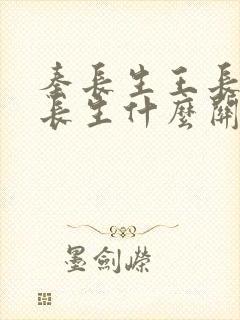 秦長生王長
長生什麼關
墨劍嶸